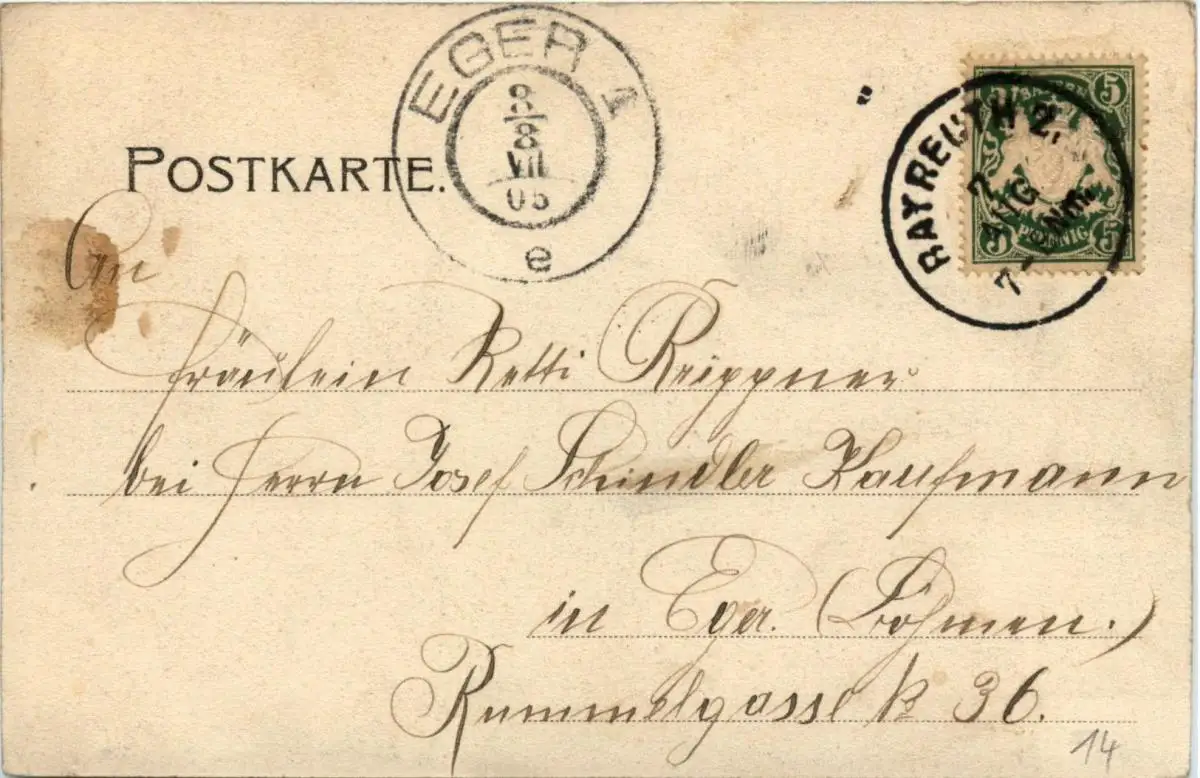 POSTKARTE.
EGER 1
8/8
VIII
05
e
BAYERN
5
BAYREUTH 2.
7
AUG
7- Nm.
5 PFENNIG 5
An
Fräulein Retti Reippner
bei Herrn Josef Schindler Kaufmann
in Eger. (Böhmen.)
Rummelgasse № 36.
14